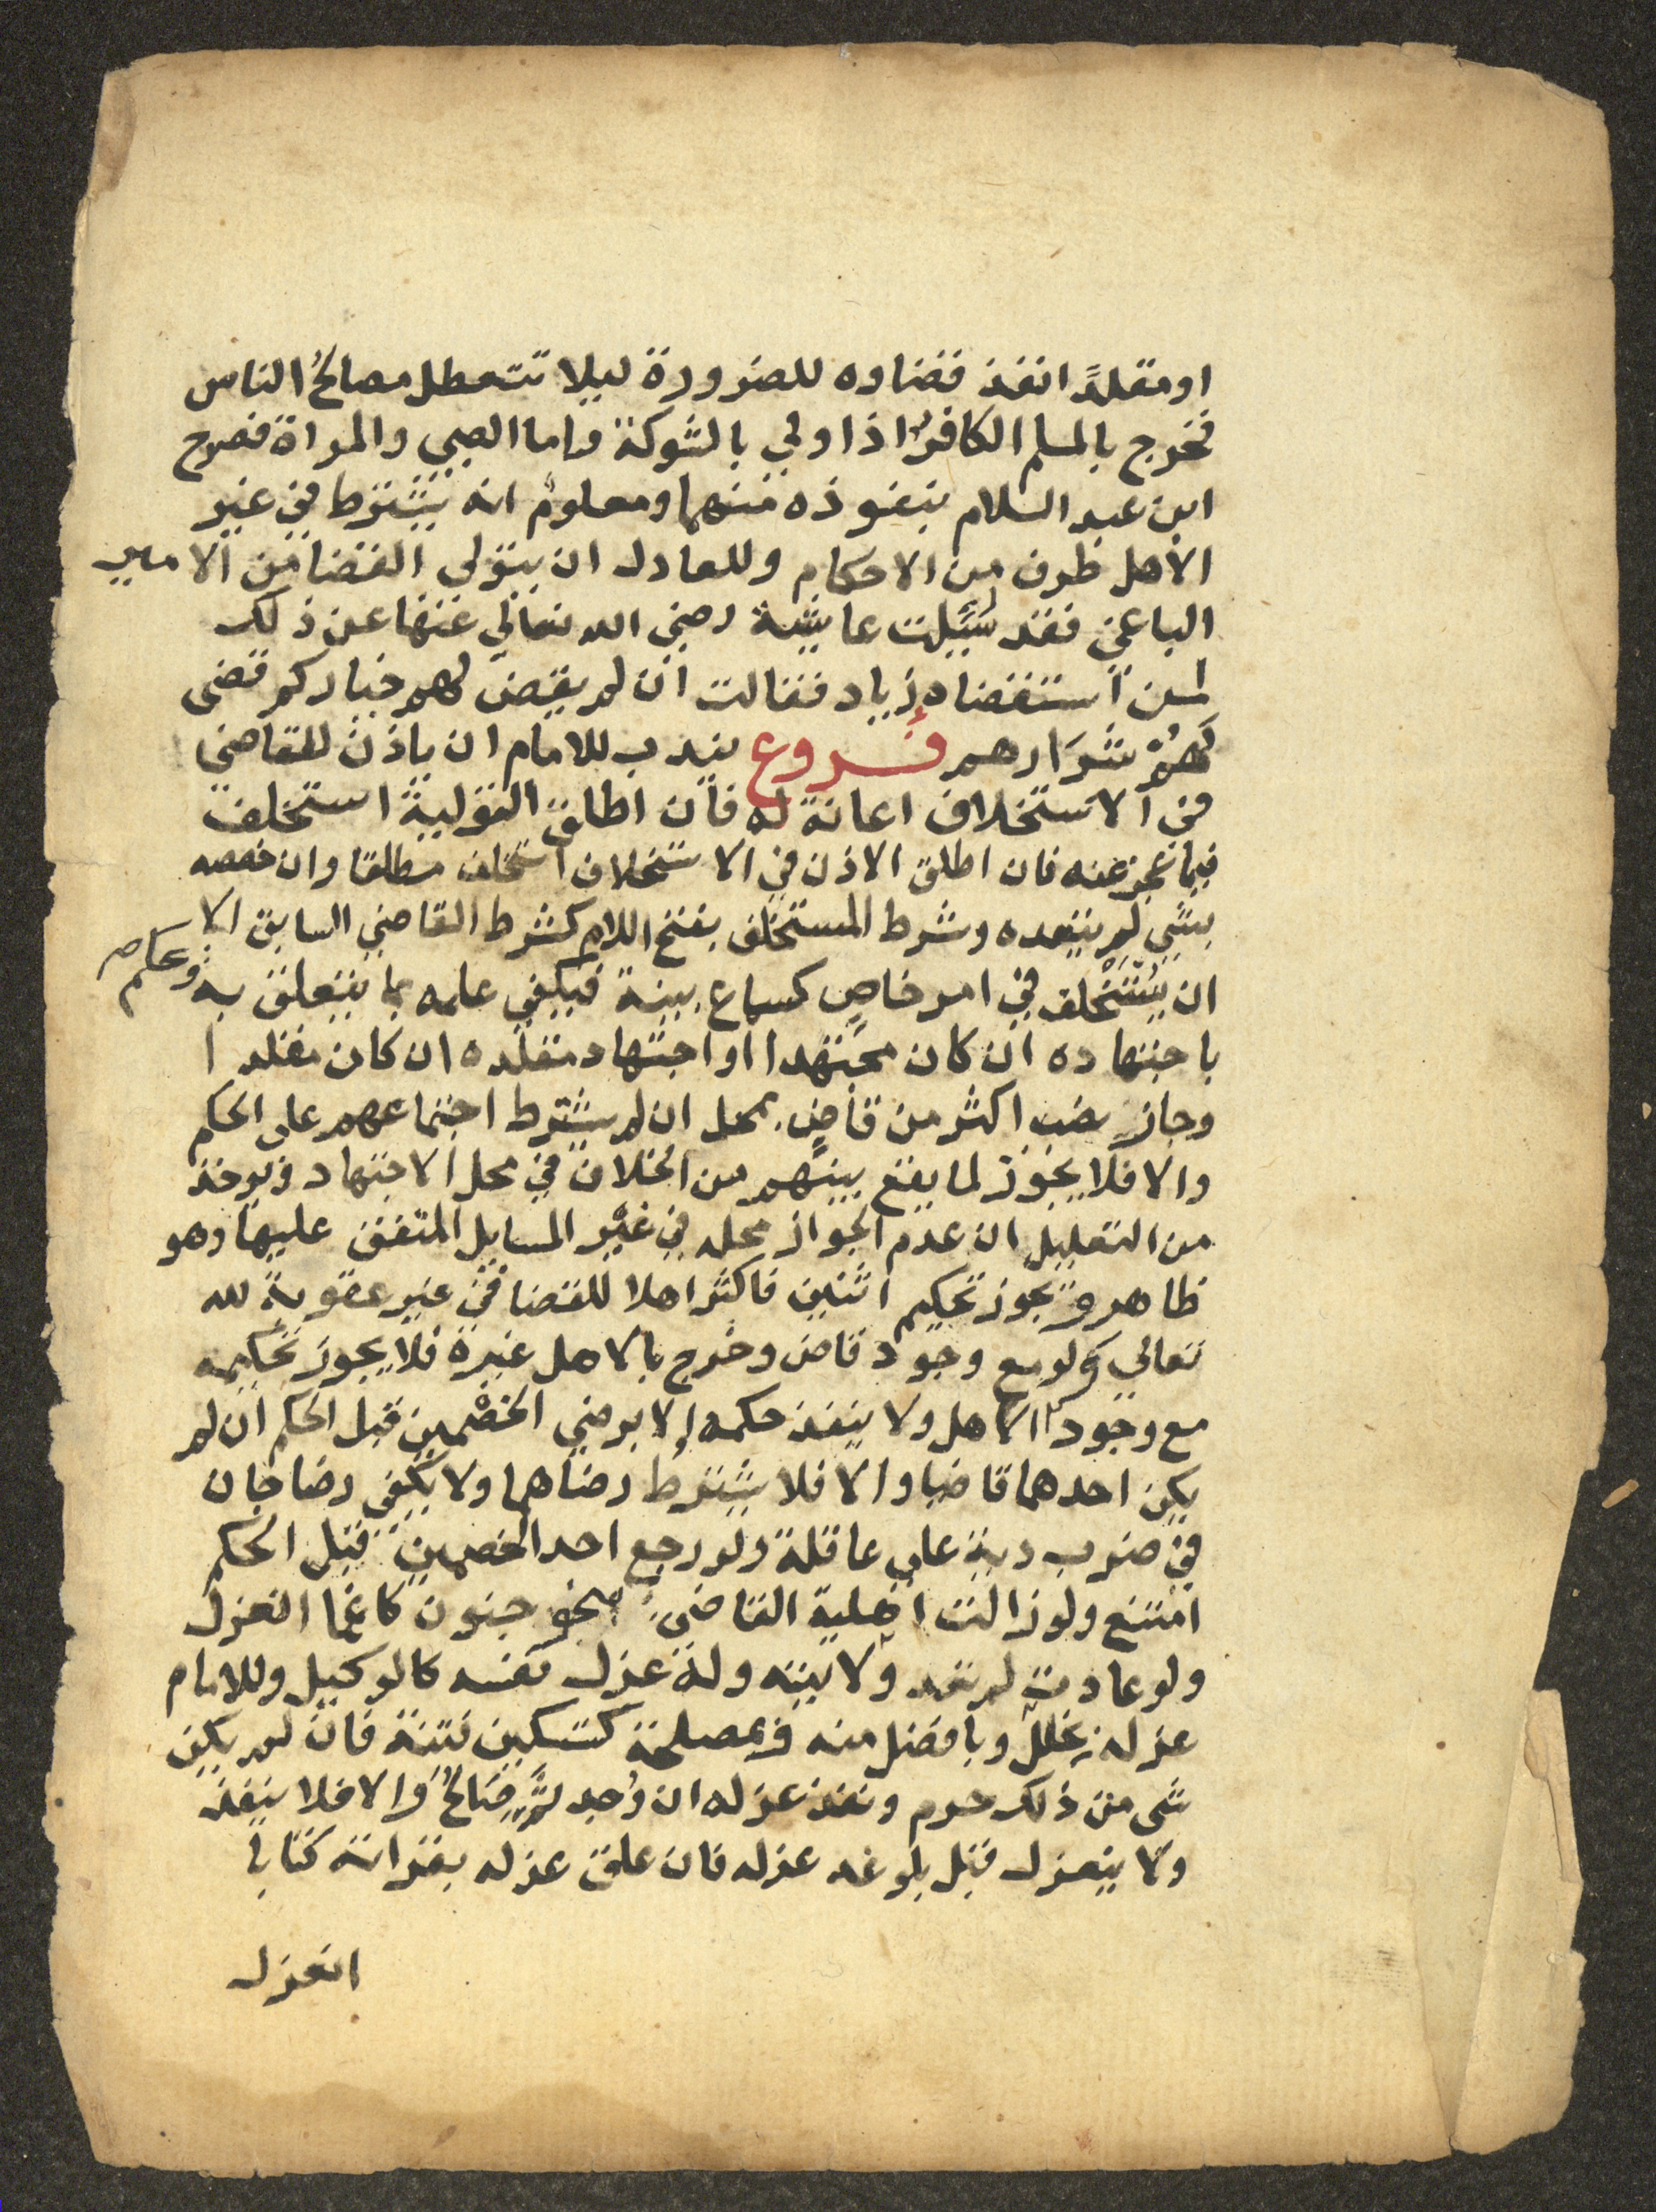 او مقلدًا نفذ قضاوه للضرورة ليلا تتعطل مصالحُ الناس
فخرج بالمسلم الكافرُ اذا ولي بالشوكة واما الصبي والمراة فصرح
ابن عبد السلام بنفوذه منهما ومعلومٌ انه يشترط في غير
الاهل طرف من الاحكام وللعادل ان يتولى القضا من الامير
الباغي فقد سُيِلت عايشة رضي الله تعالي عنها عن ذلك
لمن استقضاه زياد فقالت ان لم يقض لهم خياركم قضى
لهُمْ شرَارهم فروع يندب للامام ان ياذن للقاضي
في الاستخلاف اعانة له فان اطلق التوليةَ استخلف
فيما عجز عنه فان اطلق الاذن في الاستخلاف استخلف مطلقا وان خصصه
بشي لم يتعده وشرط المستخلَف بفتح اللام كشرط القاضي السابق الا
ان يُسْتَخْلف في امر خاصٍ كسماع بينة فيكفي علمه بما يتعلق به ويحكم
باجتهاده ان كان مجتهدا او اجتهاد مقلَده ان كان مقلدا
وجاز نصب اكثر من قاضٍ بمحل ان لم يشترط اجتماعهم على الحكم
والا فلا يجوز لما يقع بينهم من الخلاف في محل الاجتهاد ويوخذ
من التعليل ان عدم الجواز محله في غير المسايل المتفق عليها وهو
ظاهر ويجوز تحكيم اثنين فاكثر اهلا للقضا في غير عقوبة لله
تعالي ولو مع وجود قاض وخرج بالاهل غيره فلا يجوز تحكيمه
مع وجود الاهل ولا ينفذ حكمه إلا برضي الخصْمين قبل الحكم ان لم
يكن احدهما قاضيا والا فلا يشترط رضاهما ولا يكفي رضا جان
في ضرب دية على عاقلة ولو رجع احد الخصمين قبل الحكم
امتنع ولو زالت اهلية القاضي بنحو جنون كاغما انعزل
ولو عادت لم تعد ولايته وله عزل نفسه كالوكيل وللامام
عزله بخلل وبافضل منه وبمصلحة كتسكين فتنة فان لم يكن
شى من ذلك حرم ونفذ عزله ان وُجد ثَمَّ صَالحٌ والا فلا ينفذ
ولا ينعزل قبل بلوغه عزله فان علق عزله بقراته كتابا
انعزل